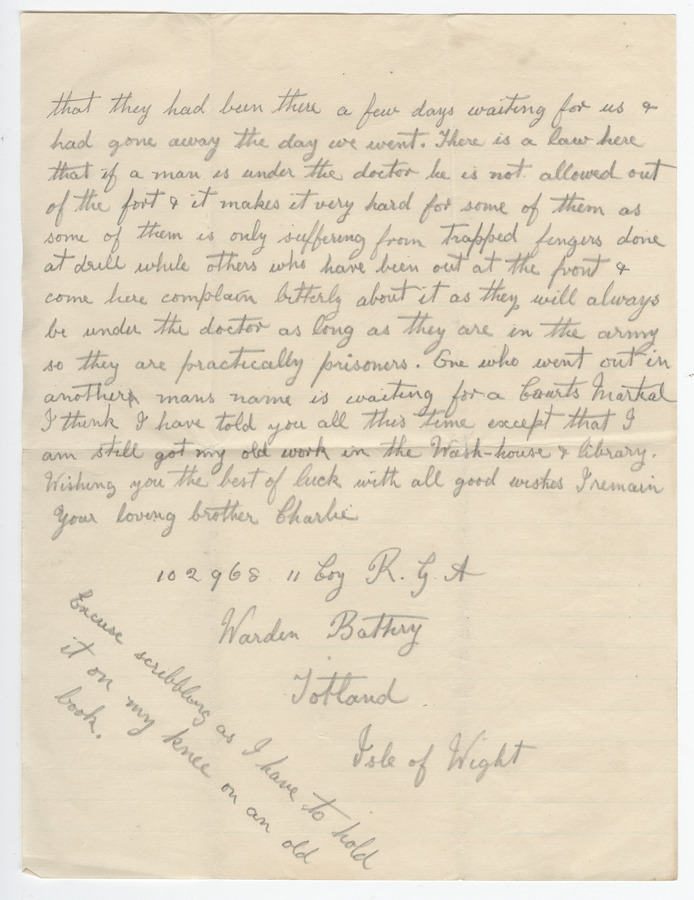 that they had been there a few days waiting for us &
had gone away the day we went. There is a law here
that if a man is under the doctor he is not allowed out
of the fort & it makes it very hard for some of them as
some of them is only suffering from trapped fingers done
at drill while others who have been out at the front &
come here complain bitterly about it as they will always
be under the doctor as long as they are in the army
so they are practically prisoners. One who went out in
another mans name is waiting for a Courts Martial
I think I have told you all this time except that I
am still got my old work in the Wash-house & library.
Wishing you the best of luck with all good wishes I remain
Your loving brother Charlie
102968 11 Coy R. G. A
Warden Battry
Totland
Isle of Wight
Excuse scribbling as I have to hold
it on my knee on an old
book.